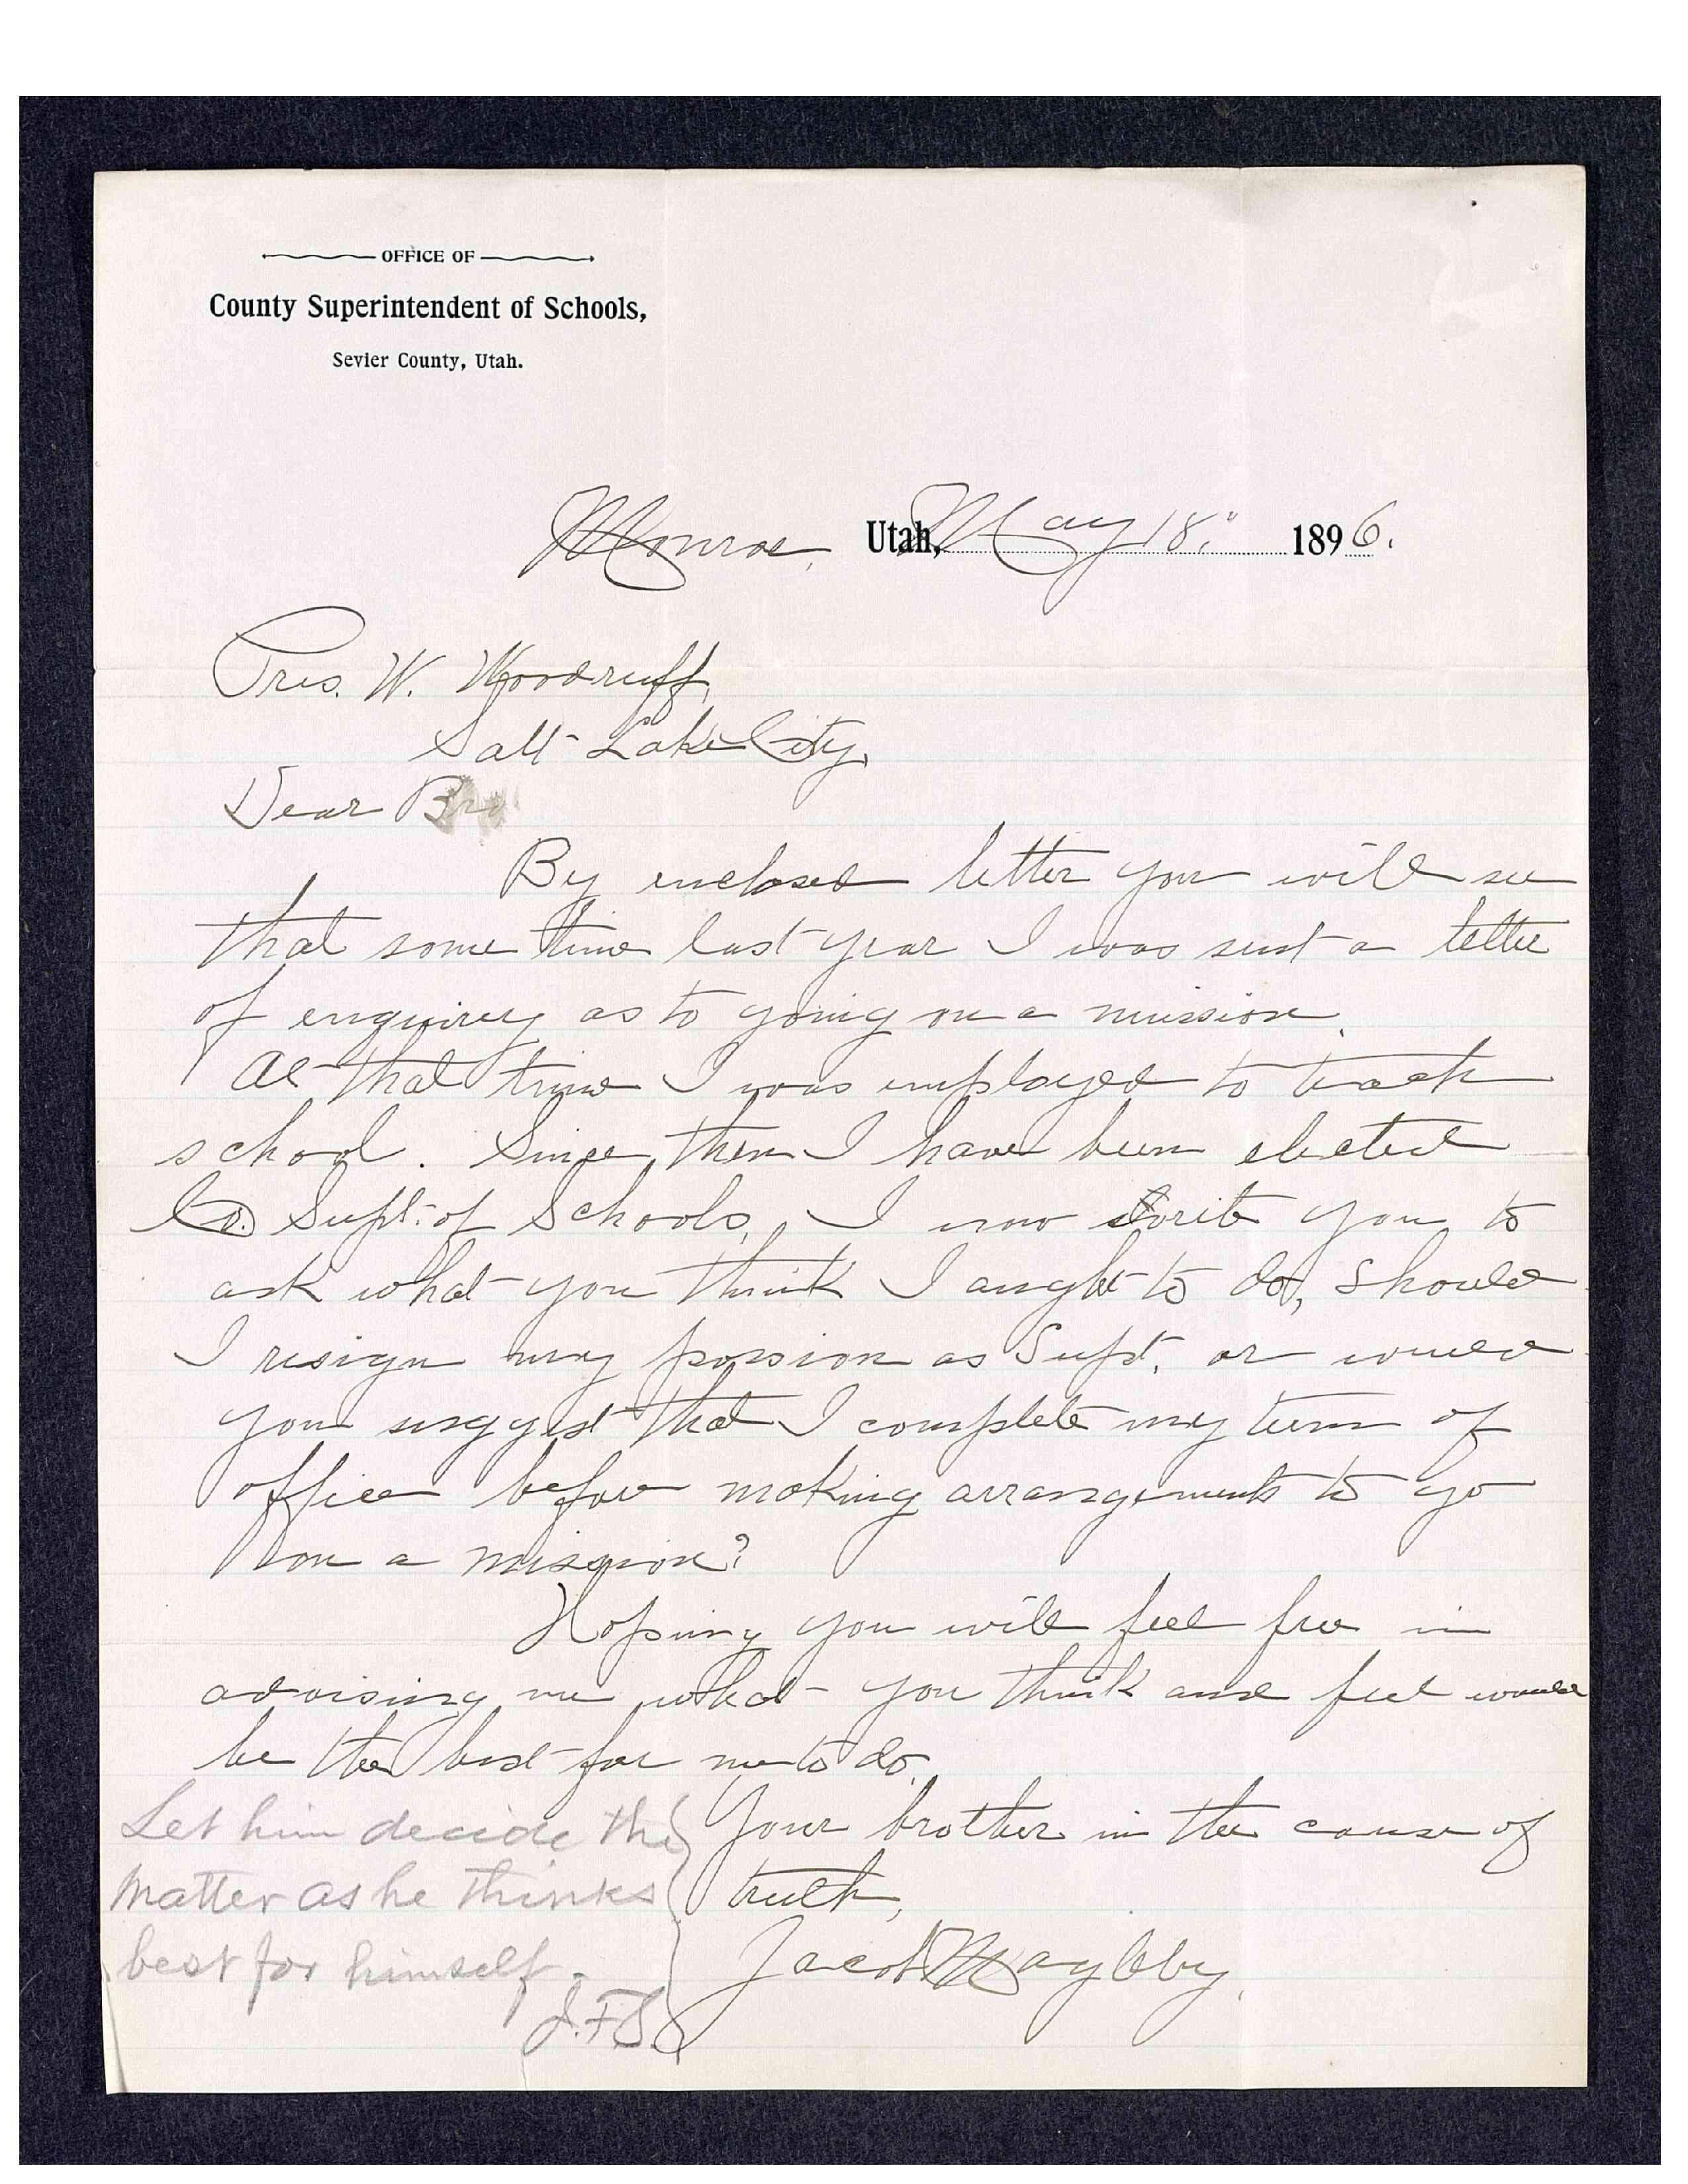 OFFICE OF
County Superintendent of Schools,
Sevier County, Utah.
Monroe, Utah, May 18." 1896.
Pres. W. Woodruff,
Salt Lake City,
Dear Bro
By enclosed letter you will see
that some time last year I was sent a letter
of enquirey as to going on a mission.
At that time I was employed to teach
school. Since then I have been elected
Co. Supt. of Schools, I now write you to
ask what you think I aught to do, should
I resign my possion as Supt. or would
you suggest that I complete my term of
office before making arrangements to go
on a mission?
Hoping you will feel free in
advising me what you think and feel would
be the best for me to do.
Your brother in the cause of
truth,
Jacob Magleby.
Let him decide the
matter as he thinks
best for himself.
J.F.S.